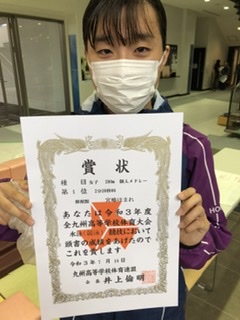 賞状
種目 女子 200m 個人メドレー
第1位 2分20秒
あなたは令和3年度
全九州高等学校体育大会
水泳(競泳)競技において
頭書の成績をあげたので
これを賞します
令和3年7月18日
九州高等学校体育連盟
会長 井上倫明